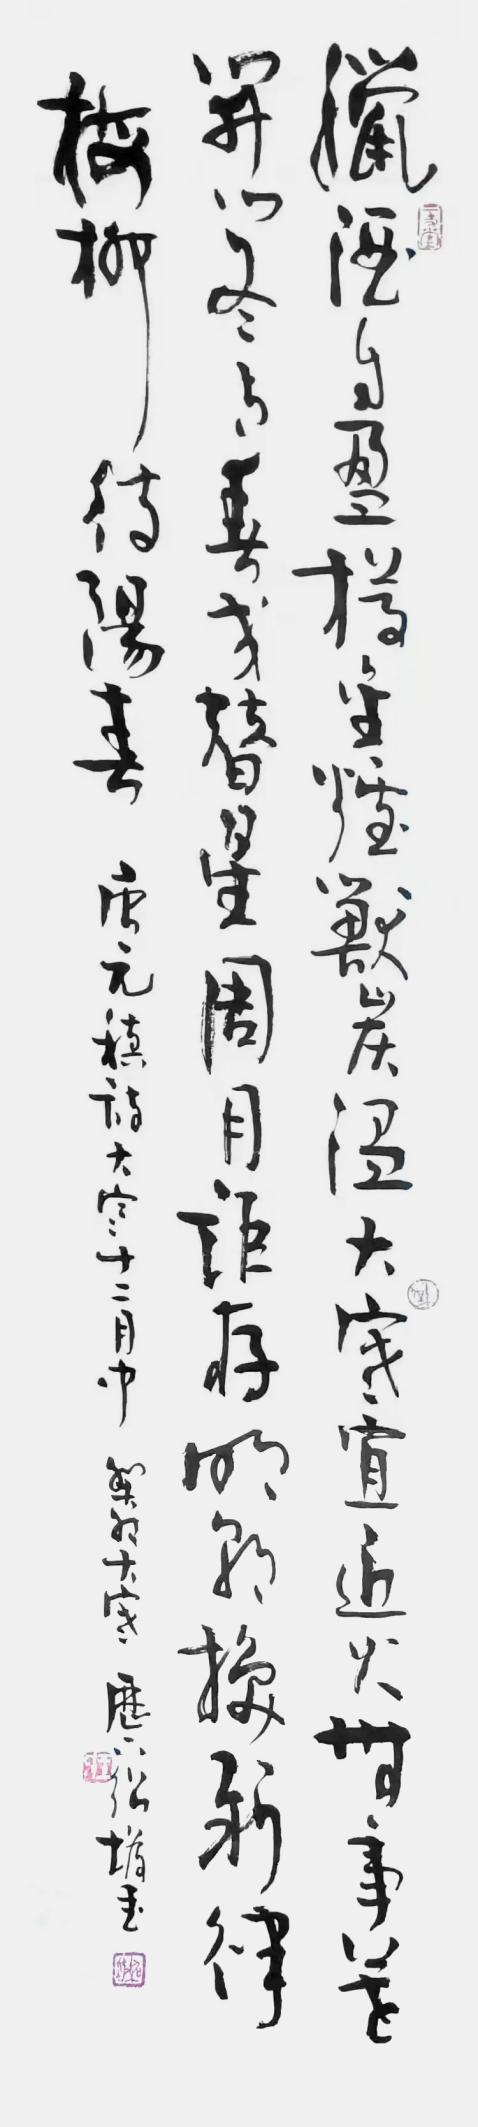 臘酒自盈樽金爐獸炭溫大寒宜近火無事莫
開門冬与春交替星周月詎存明朝換新律
梅柳待陽春 唐元稹詩大寒十二月中 癸卯大寒 歷下